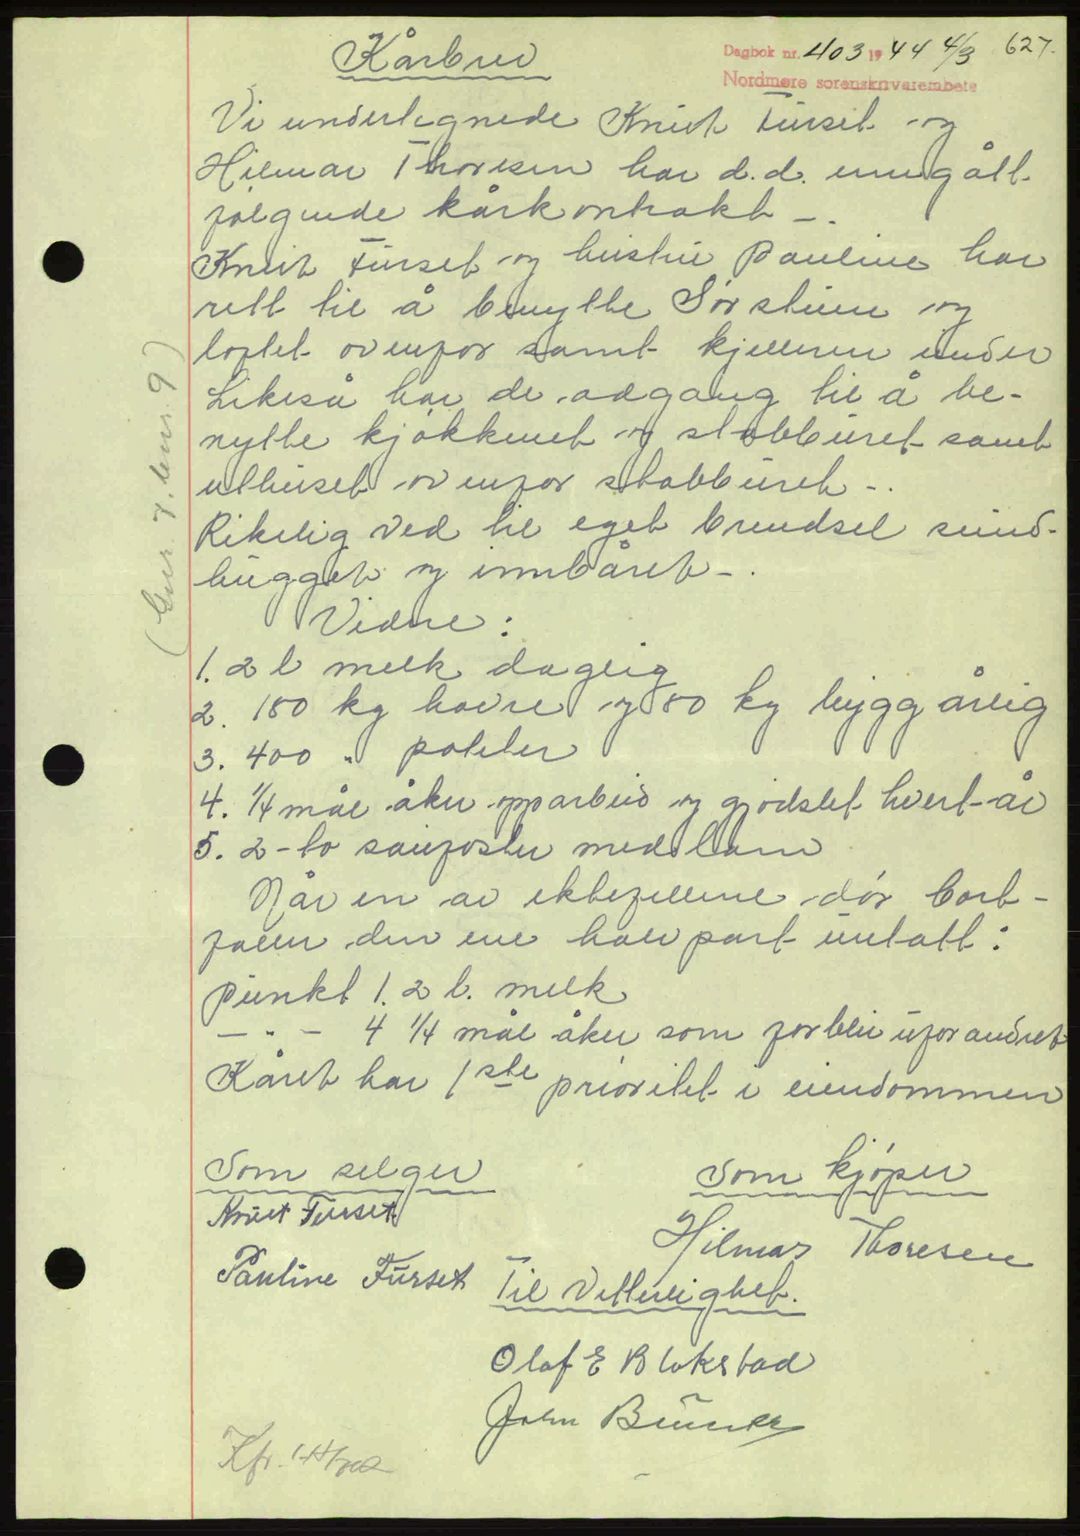 Kårbrev
Dagbok nr. 403 1944 4/3 627.
Nordmøre sorenskriverembete
Vi undertegnede Knut Furset og
Hilmar Thoresen har d.d. inngått
følgende kårkontrakt -.
Knut Furset og hustru Pauline har
rett til å benytte Sørstuen og
loftet ovenfor samt kjelleren under
Likeså har de adgang til å be-
nytte kjøkkenet og stabburet samt
uthuset ovenfor stabburet -.
Rikelig ved til eget brendsel smud-
hugget og innbåret -.
Vidre:
1. 2 l melk daglig
2. 180 kg havre og 80 kg bygg årlig
3. 400 " poteter
4. 1/4 mål åker opparbeid og gjødslet hvert år
5. 2-to sauefoster med lam
Når en av ektefellene dør bort-
faller den ene halvpart untatt:
punkt 1. 2 l. melk
— " — 4 1/4 mål åker som forblir uforandret
Kåret har 1ste prioritet i eiendommen
(Gnr. 7. bnr. 9)
Som selger
Som kjøper
Knut Furset
Hilmar Thoresen
Pauline Furset
Til Vitterlighet.
Olaf E Blokstad
John
Kfr.